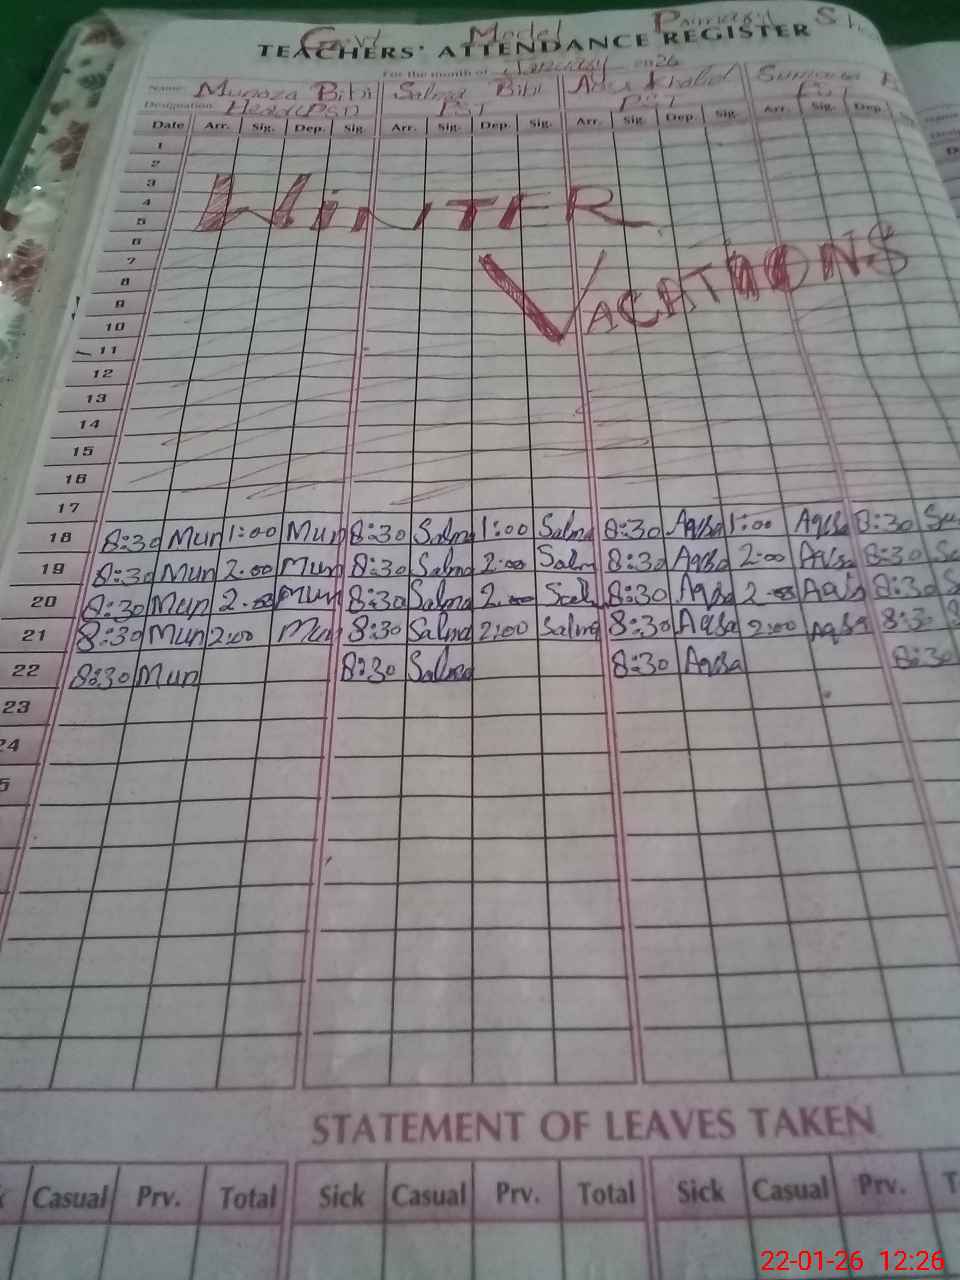 Govt Model Primary
TEACHERS' ATTENDANCE REGISTER
For the month of January 2026
Name Munaza Bibi Salma Bibi Khalid
Designation Head(PST) PST PST PST
Date Arr. Sig. Dep. Sig. Arr. Sig. Dep. Sig. Arr. Sig. Dep. Sig. Arr. Sig. Dep.
1
2
3
4
5
WINTER
6
7
8
VACATIONS
9
10
11
12
13
14
15
16
17
18 8:30 Mun 1:00 Mun 8:30 Salma 1:00 Salma 8:30 Aqsa 1:00 Aqsa 8:30
19 8:30 Mun 2:00 Mun 8:30 Salma 2:00 Salm 8:30 Aqsa 2:00 Aqsa 8:30
20 8:30 Mun 2:00 Mun 8:30 Salma 2:00 8:30 Aqsa 2:00 Aqsa 8:30
21 8:30 Mun 2:00 Mun 8:30 Salma 2:00 Salma 8:30 Aqsa 2:00 Aqsa 8:30
22 8:30 Mun 8:30 Salma 8:30 Aqsa 8:30
23
24
5
STATEMENT OF LEAVES TAKEN
Casual Prv. Total Sick Casual Prv. Total Sick Casual Prv.
22-01-26 12:26